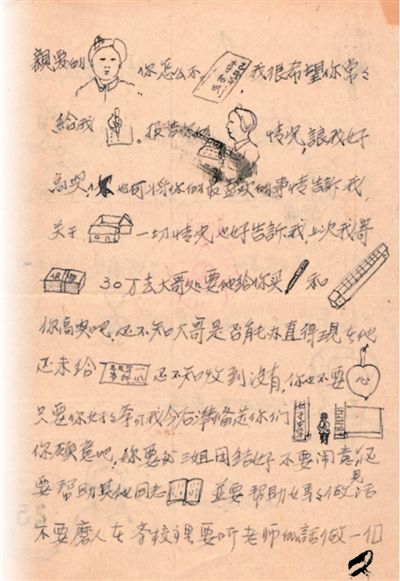 親爱的 你怎么不 我很希望你常々
給我 。报告你的 情况,讓我好
高兴,你也可將你的最 的事情告訴我,
关于 一切情况也好告訴我,上次我寄
30万去大哥処要他给你买 和
你高兴吧,还不知大哥是否能办 得現在他
还未给 还不知收到没有,你也不要 心
只要你好好学习我今后準备送你们
你願意吧,你要 三姐团结好不要闹意见
要帮助其他同志 並要帮助 做活
不要磨人在学校里要听老师的話做一個